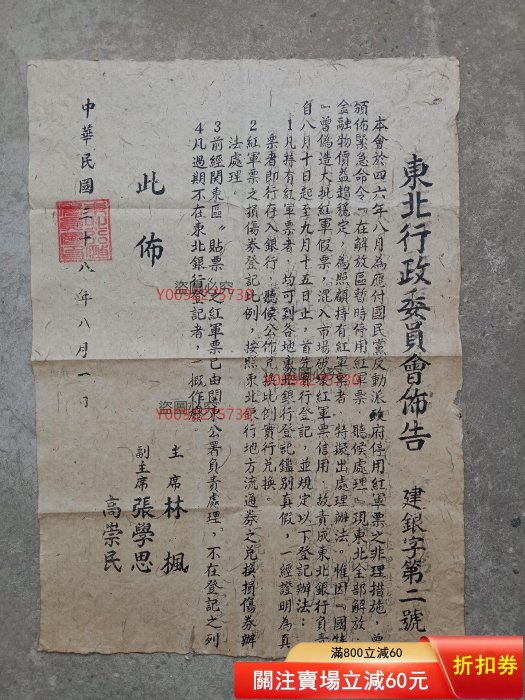 東北行政委員會佈告 建銀字第二號
本會於四六年八月為應付國民黨反動派政府停用紅軍票之非理措施，曾
頒佈緊急命令『在解放區暫時停用紅軍票 聽候處理』現東北全部解放
金融物價益趨穩定，為照顧持有紅軍票者，特擬出處理辦法。惟因『國特
』曾偽造大批紅軍假票，混入市場破壞紅軍票信用，故責成東北銀行負責
自八月十日起至九月十五日止，首先舉行登記，並規定以下登記辦法：
1凡持有紅軍票者，均可到各地東北銀行登記鑑別真假，一經證明為真
票者即行存入銀行，聽候公佈兌換比例實行兌換。
2紅軍票之損傷券登記比例，按照東北銀行地方流通券之兌換損傷券辦
法處理。
3前經関東區"貼票"之紅軍票已由関東公署負責處理，不在登記之列
4凡過期不在東北銀行登記者，一概作廢。
此佈
主席 林楓
副主席 張學思
高崇民
中華民國三十八年八月一日
盜圖必究
Y0092225730
盜圖必究
Y0092225730
滿800立減60
關注賣場立減60元
折扣券